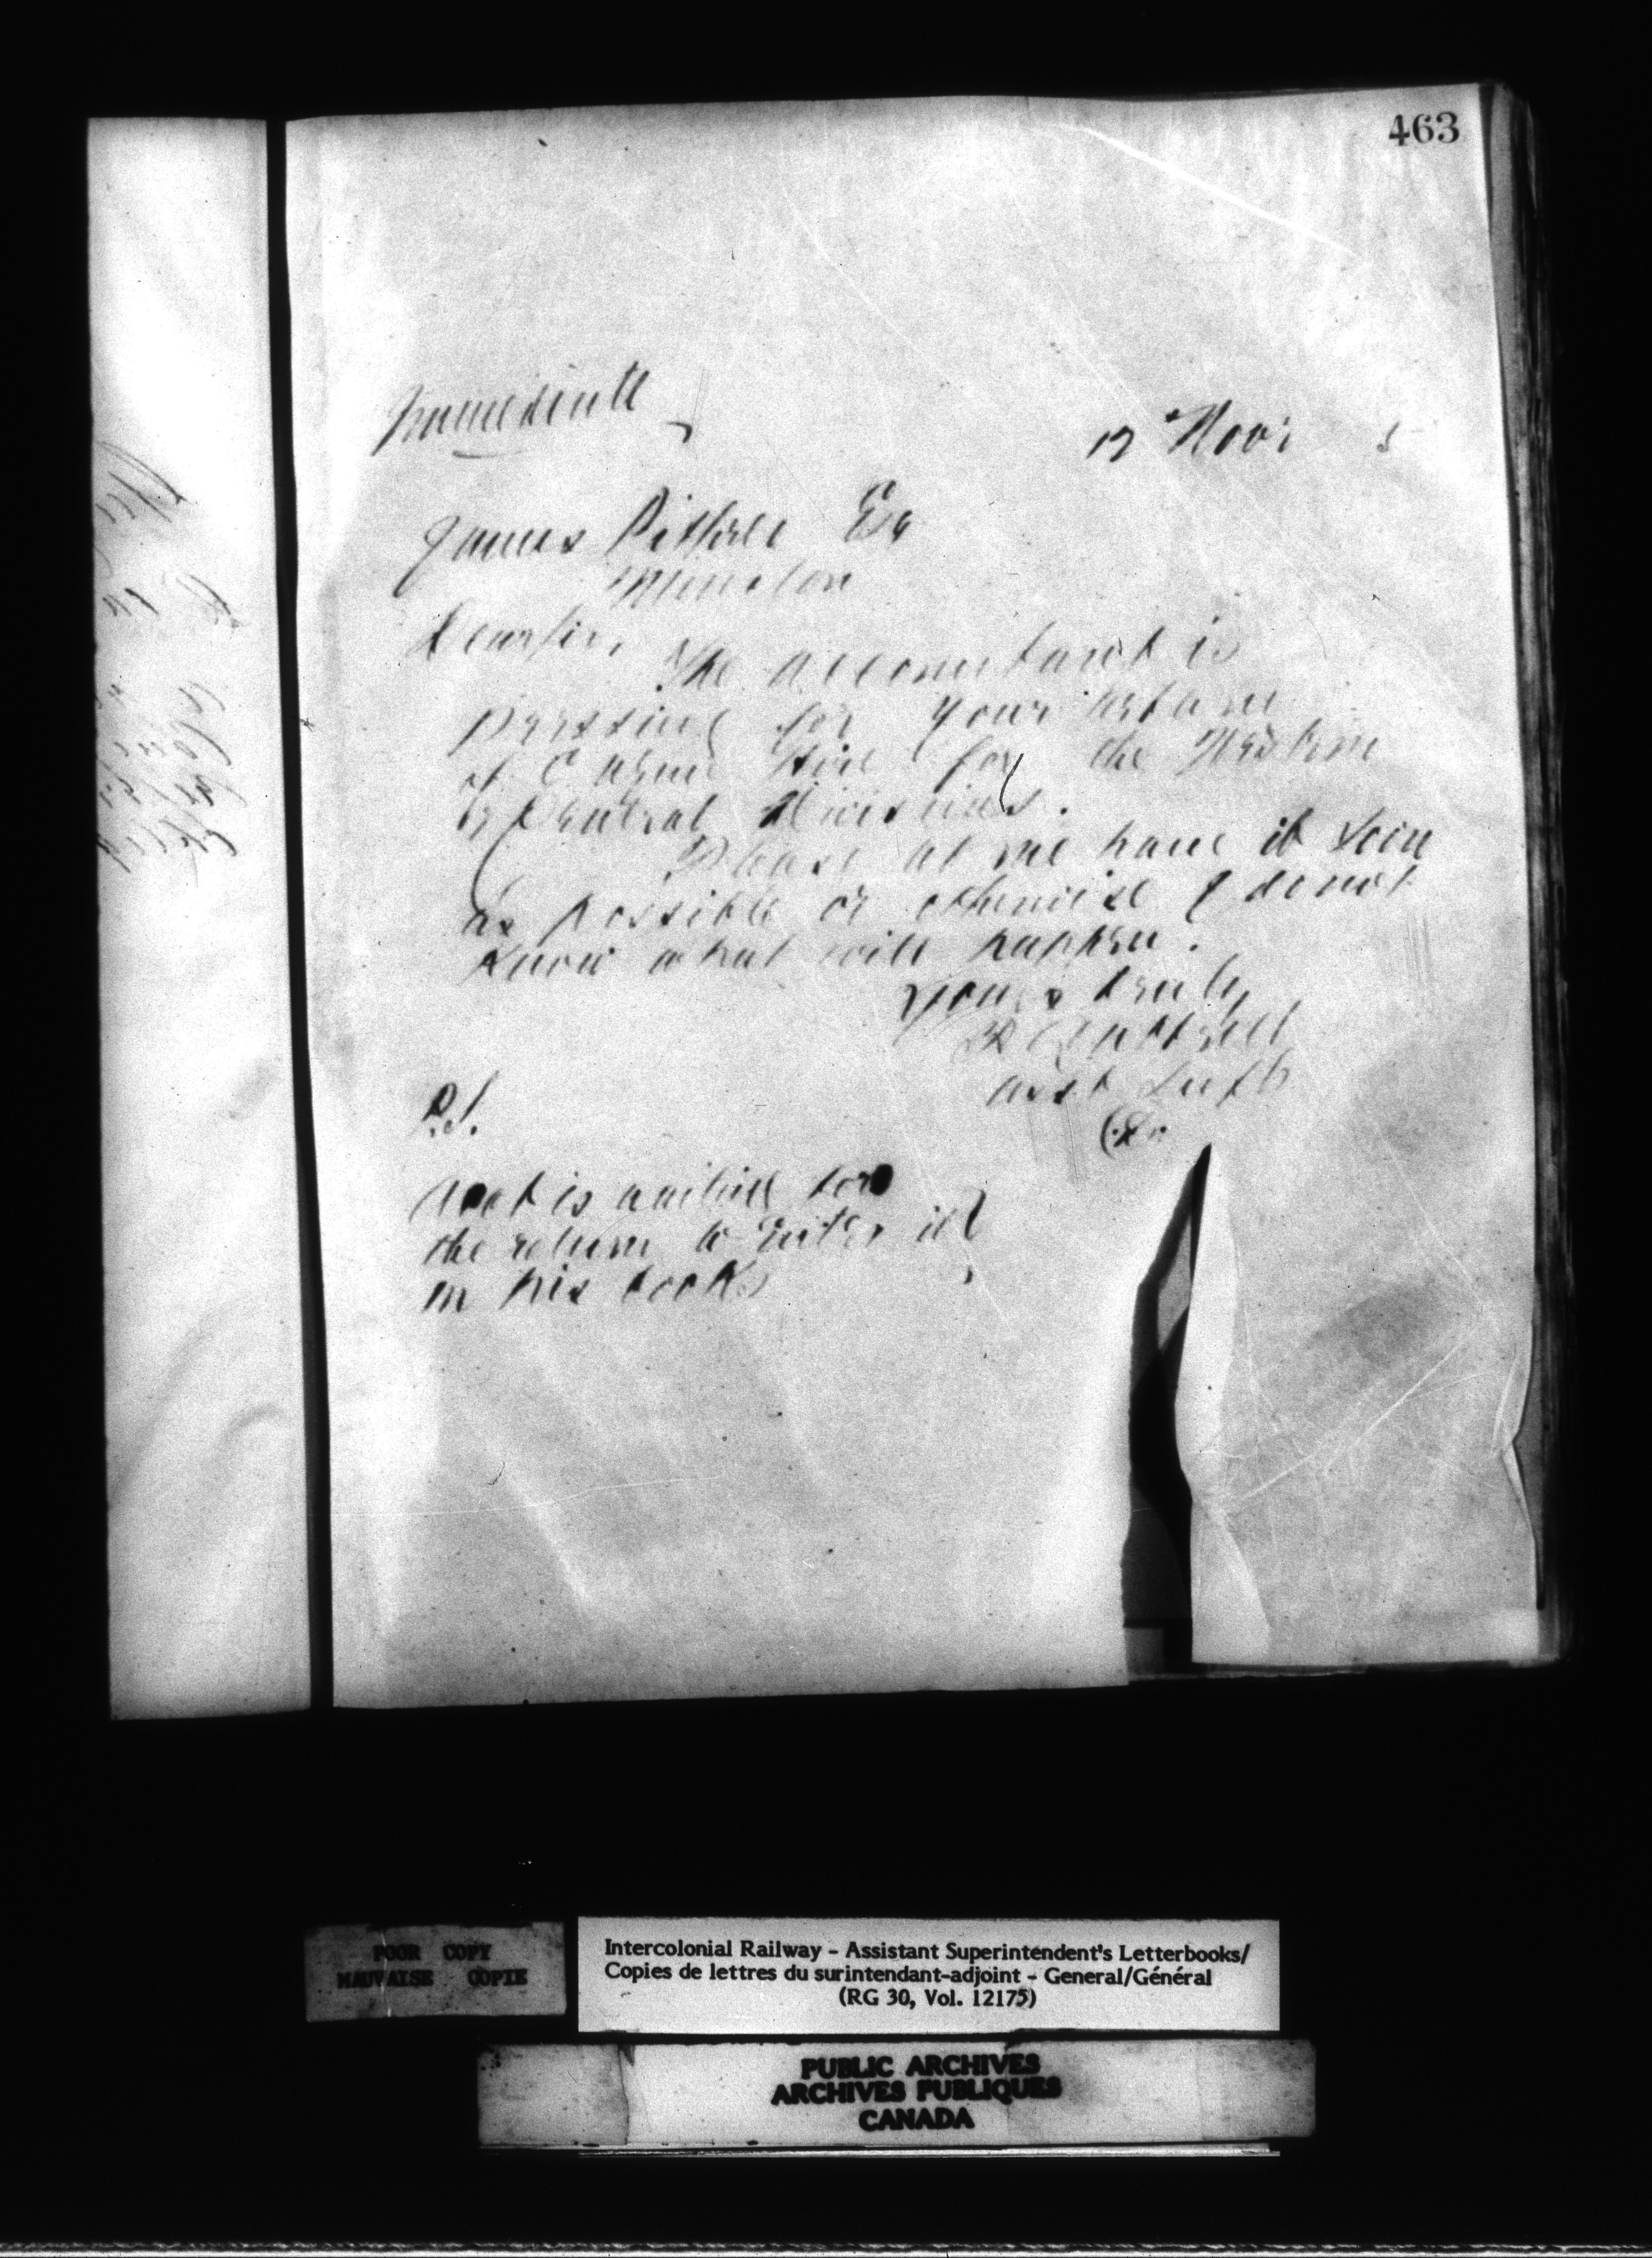 463
Immediate
12 Novr 5
James Pitfield Eq
Moncton
Dear Sir,
The accountant is
pressing for your return
of Engine Hire for the Western
& Central Divisions.
Please let me have it soon
as possible or otherwise I do not
know what will happen.
Yours truly
Asst Supt
P.S.
Acct is waiting for
the return to enter it
in his books
POOR COPY
MAUVAISE COPIE
Intercolonial Railway - Assistant Superintendent's Letterbooks/
Copies de lettres du surintendant-adjoint - General/Général
(RG 30, Vol. 12175)
PUBLIC ARCHIVES
ARCHIVES PUBLIQUES
CANADA